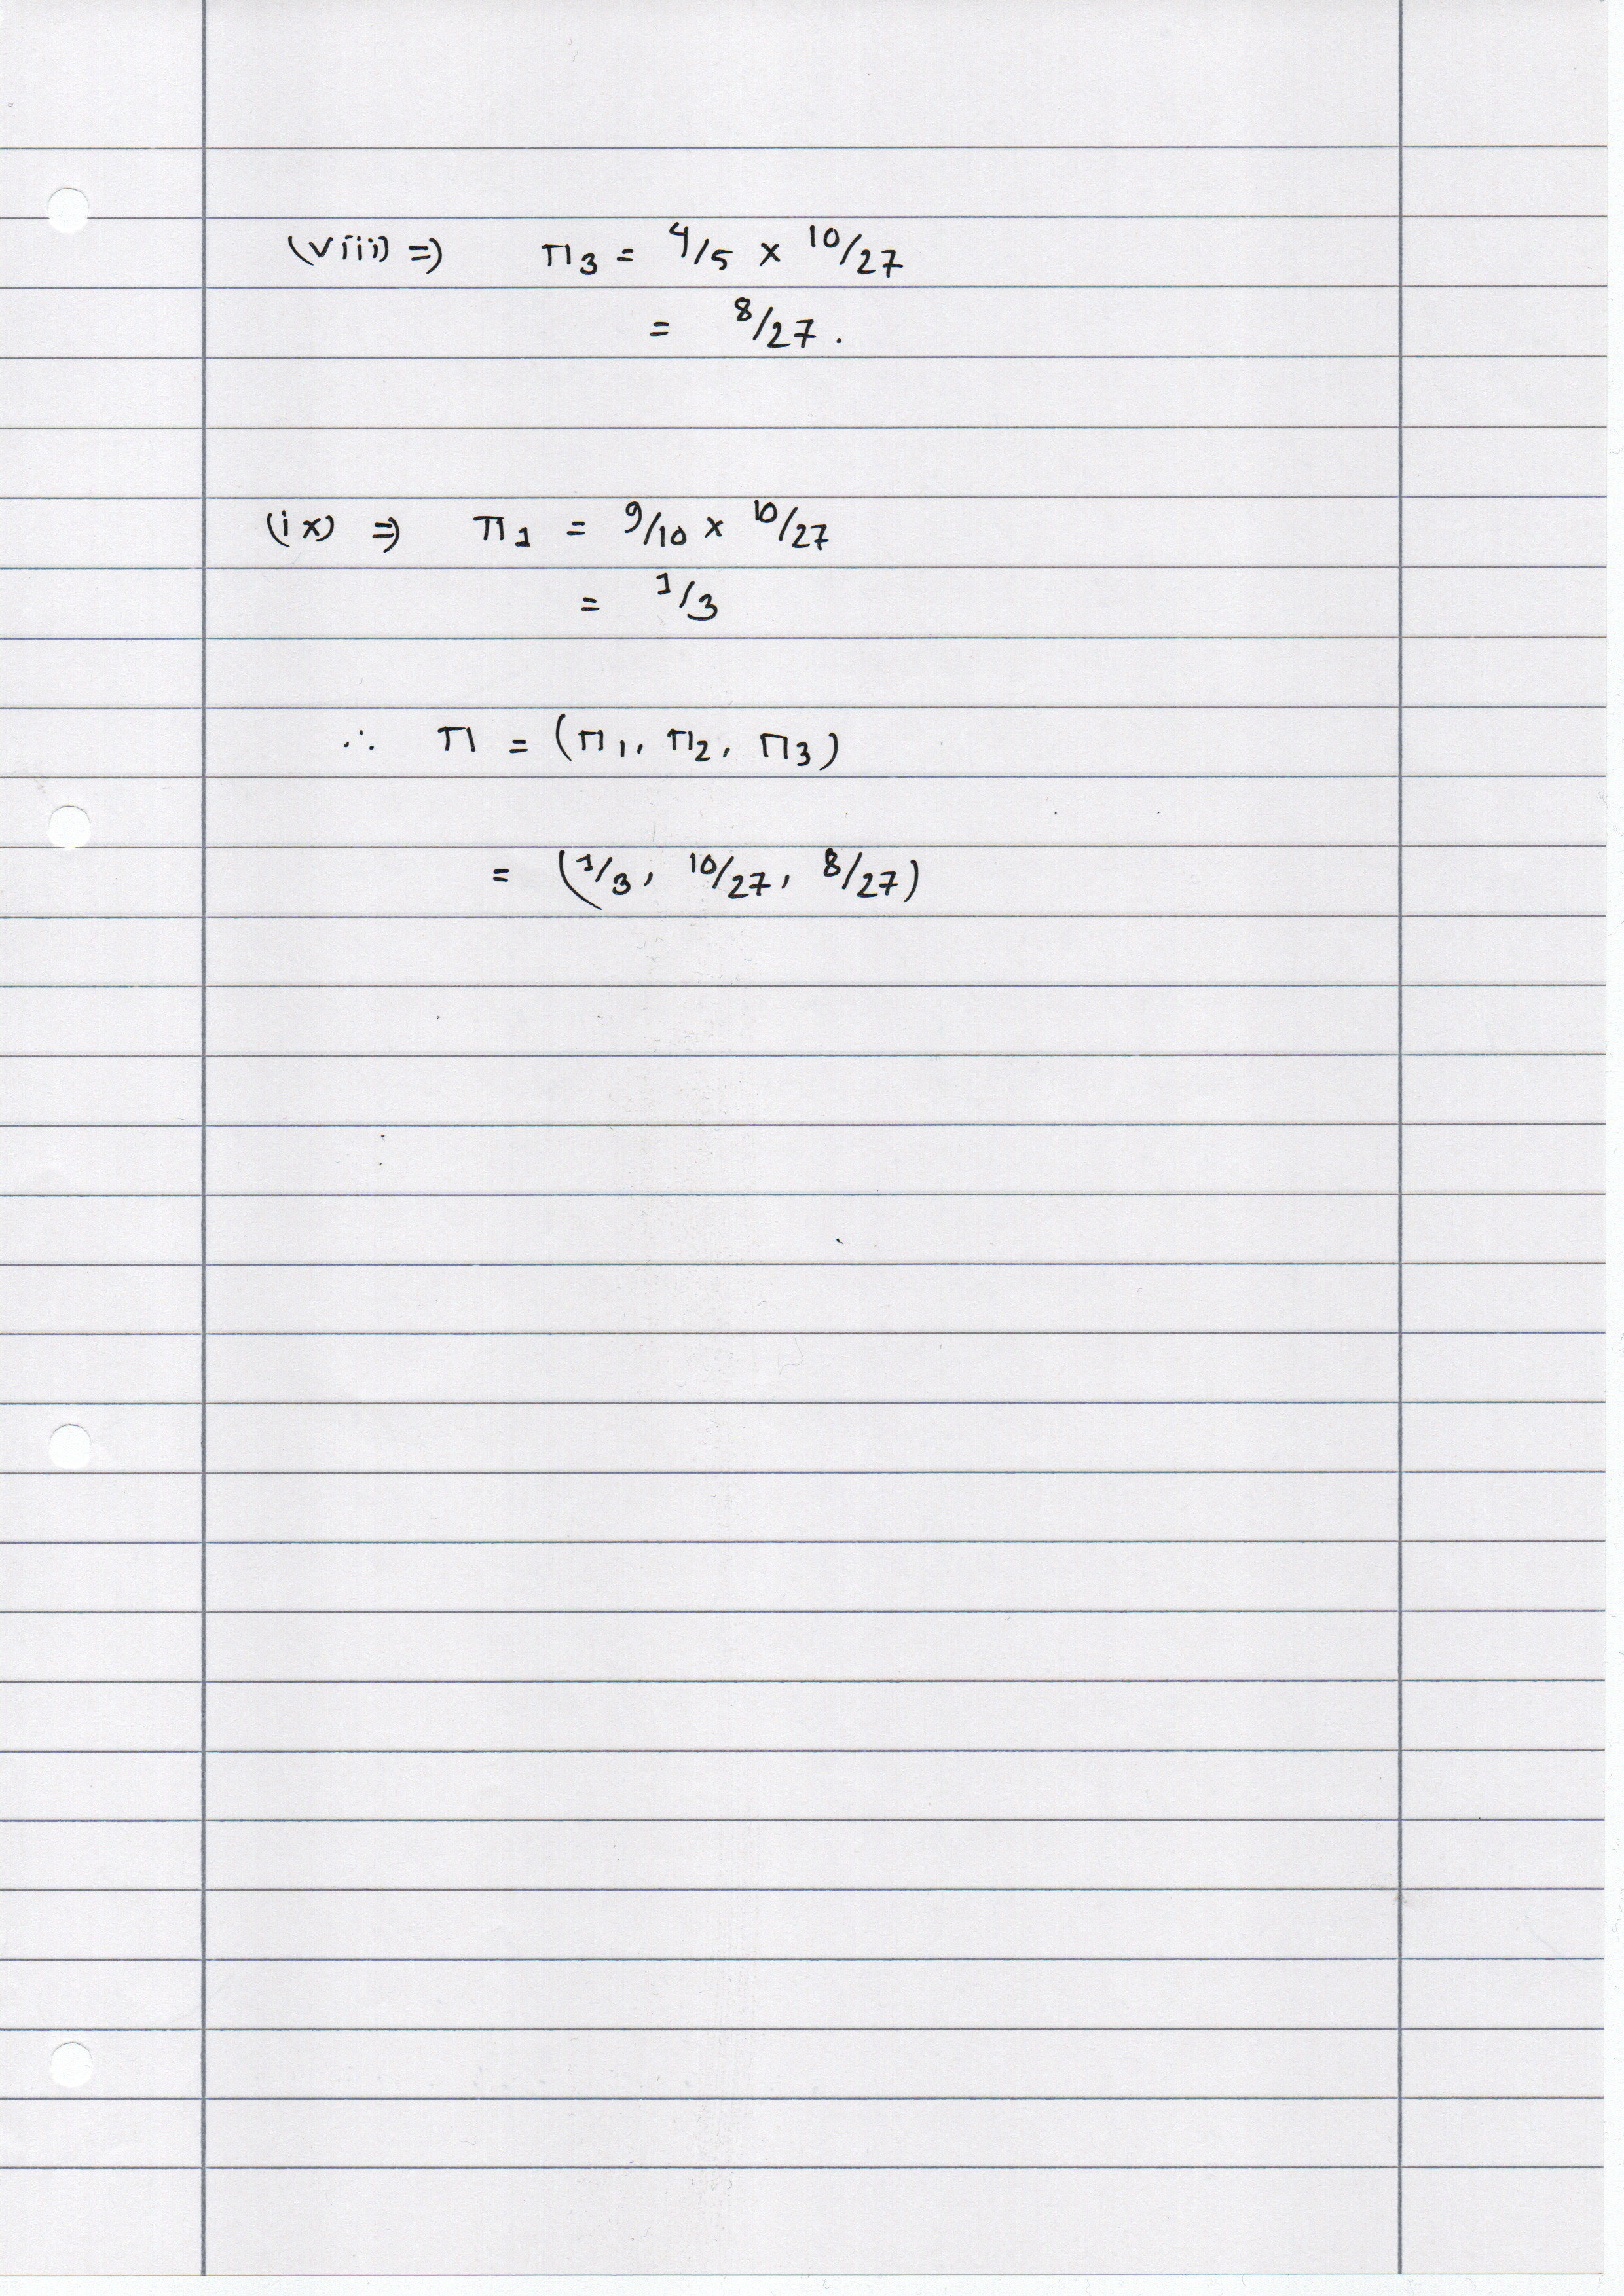 (viii) ⇒ π₃ = 4/5 × 10/27
= 8/27 .
(ix) ⇒ π₁ = 9/10 × 10/27
= 1/3
∴ π = (π₁, π₂, π₃)
= (1/3, 10/27, 8/27)